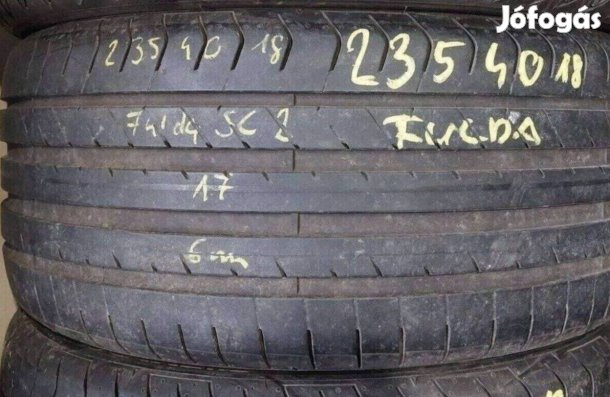 Jófogás
235 40 18
235 40 18
Fulda SC 2
FULDA
17
6mm